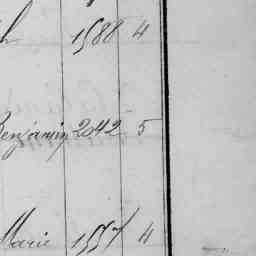 h 1588 4
Benjamin 2042 5
Marie 1557 4